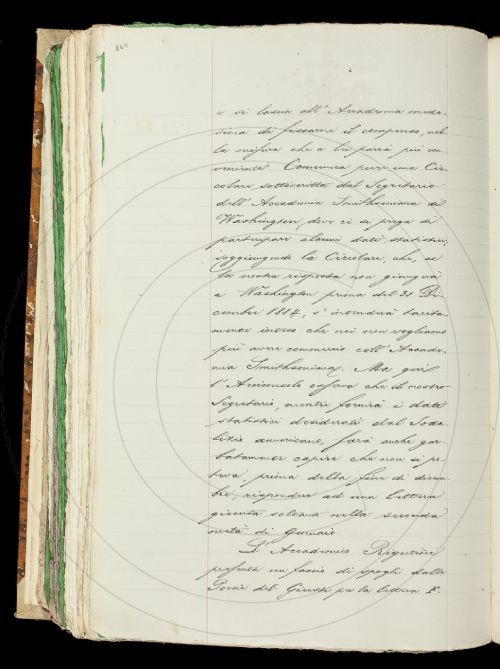 864
e si lascia all'Accademia mede-
sima di fissarne il compenso, nel-
la misura che a lei parrà più con-
veniente. Comunica pure una Cir-
colare sottoscritta dal Segretario
dell'Accademia Smithsoniana di
Washington, dove ci si prega di
partecipare alcuni dati statistici,
soggiungendo la Circolare, che, se
la nostra risposta non giungerà
a Washington prima del 31 Di-
cembre 1884, s'intenderà tacita-
mente inteso che noi non vogliamo
più avere commercio coll'Accade-
mia Smithsoniana. Ma qui
l'Arciconsolo che il nostro
Segretario, mentre fornirà i dati
statistici desiderati dal Soda-
lizio americano, farà anche gar-
batamente capire che non si po-
teva, prima della fine di decem-
bre, rispondere ad una lettera
giunta soltanto nella seconda
metà di Gennaio.
L'Accademico Rigutini
presenta un fascio di spogli dalle
Poesie del Giusti per la lettera F.